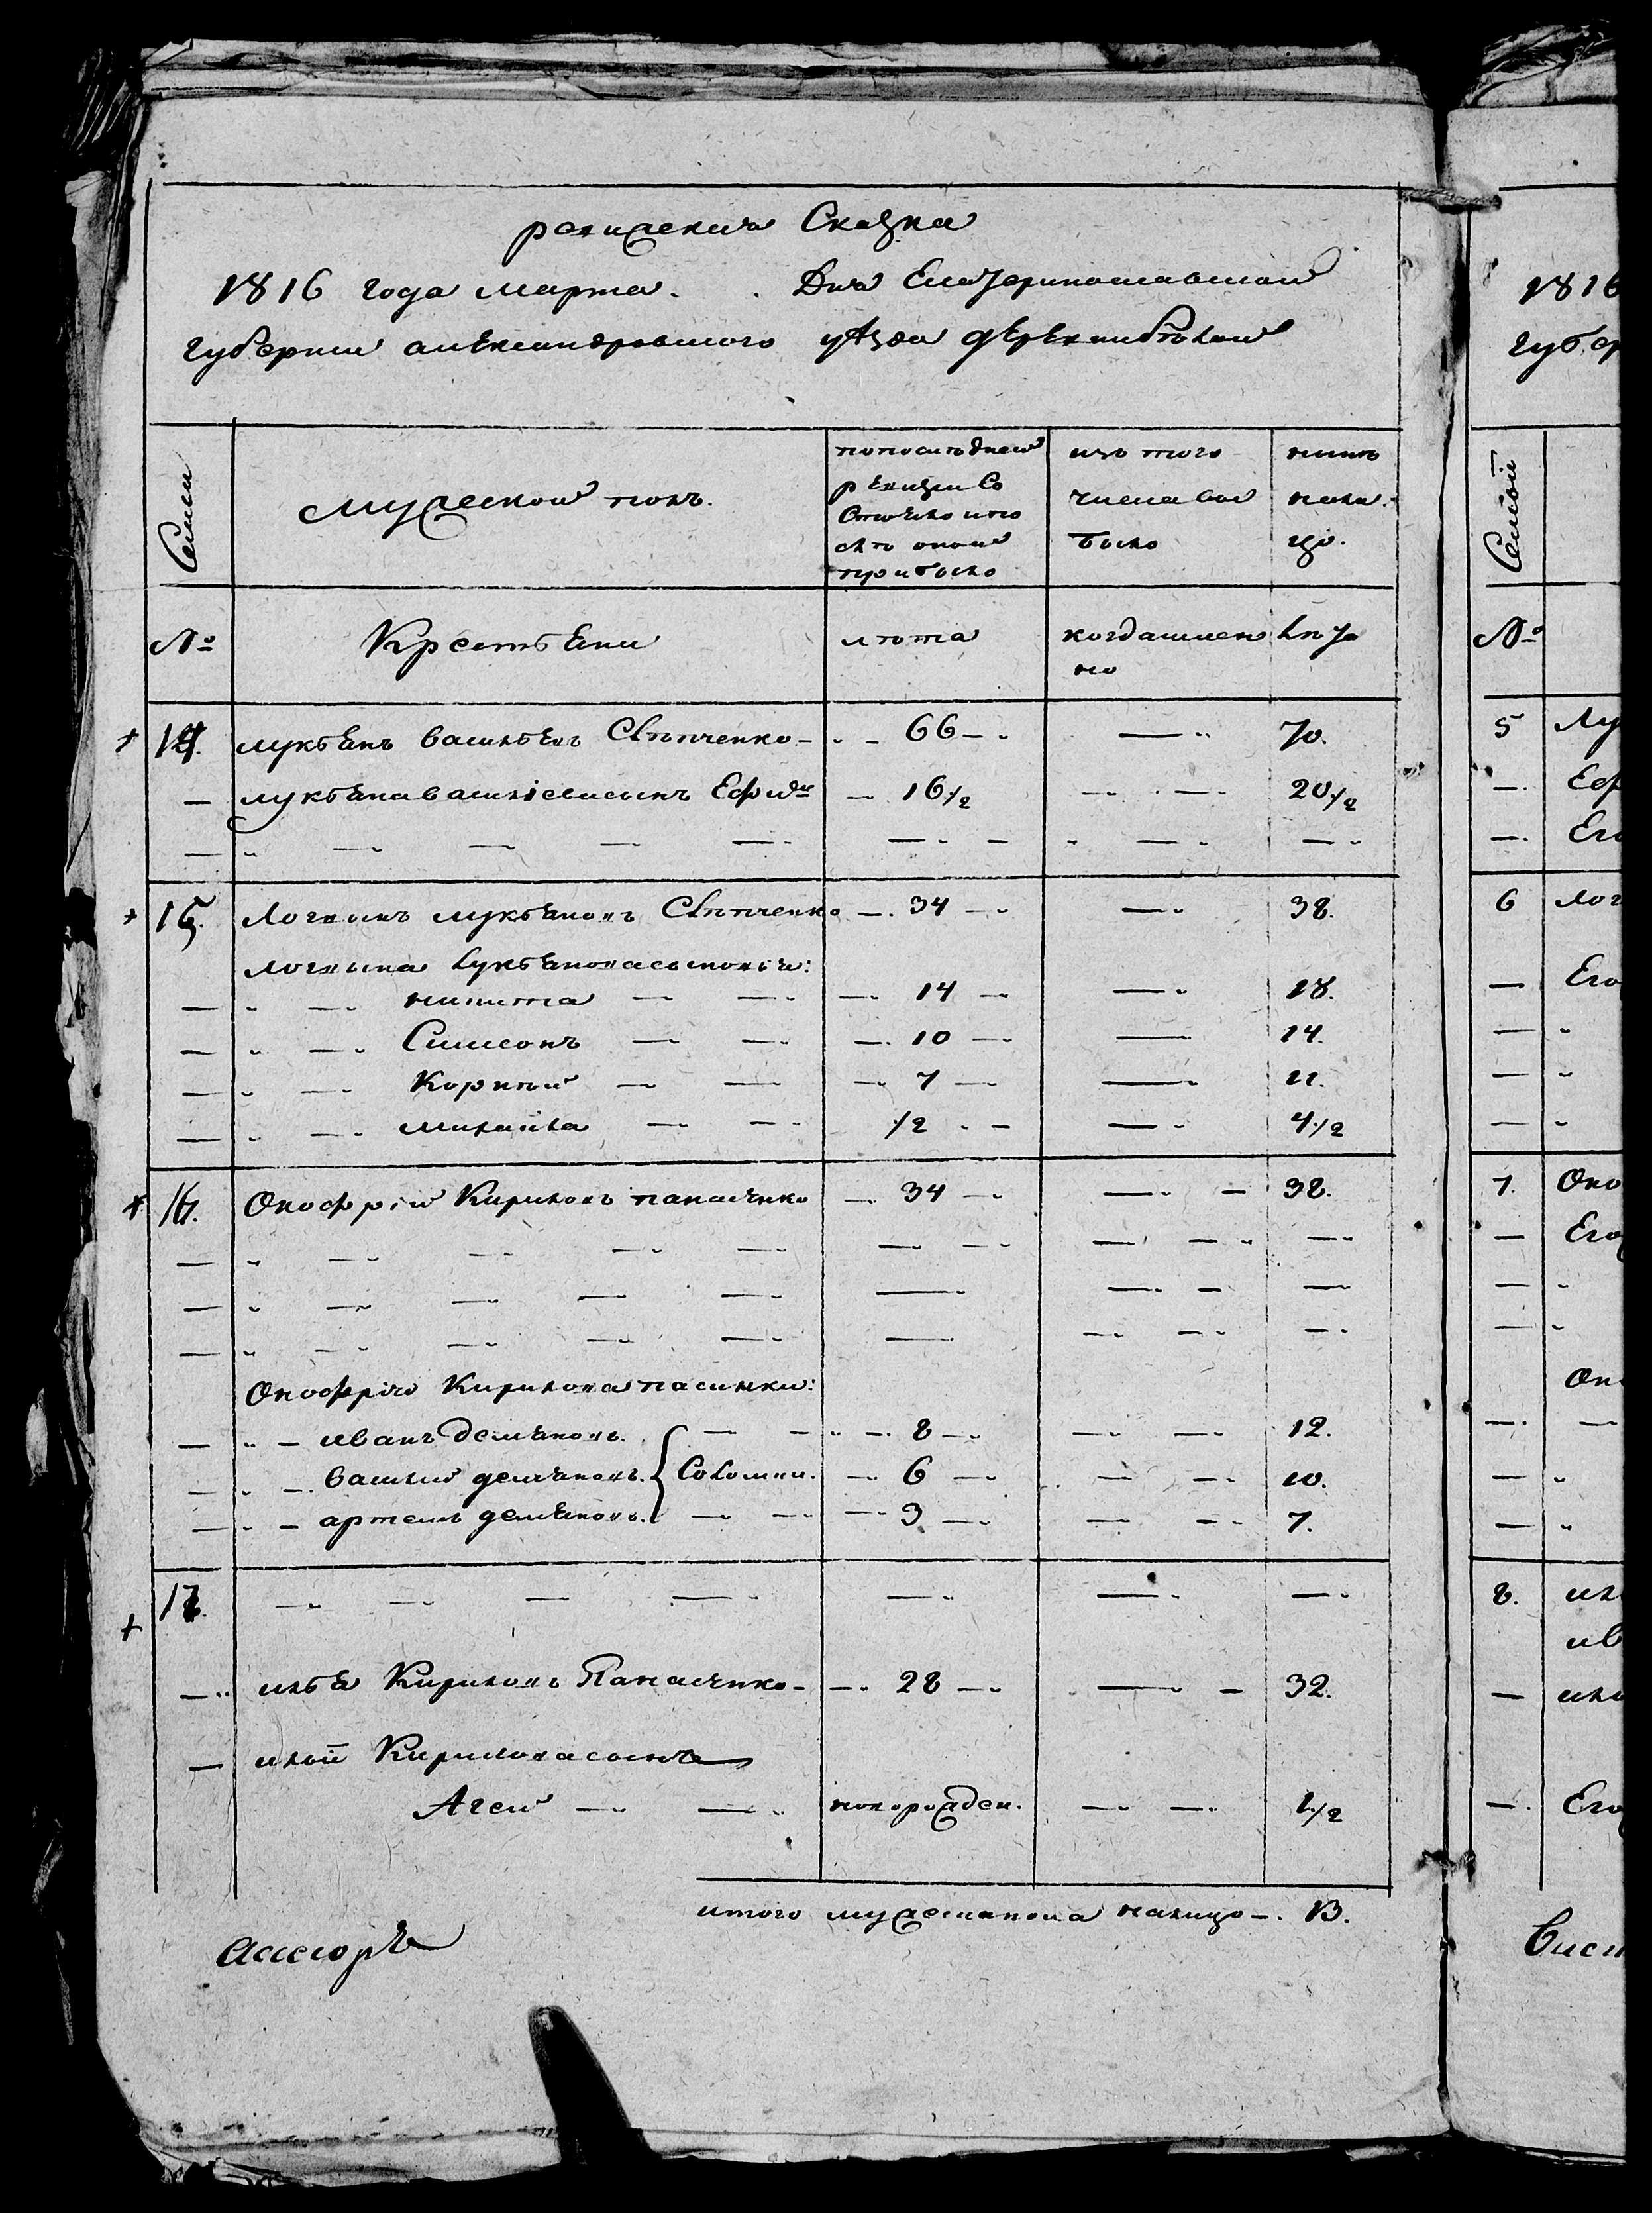 ревижская Сказка
1816 года марта. Дня Екатеринославской
губернии александровского уѣзда деревни бѣлой
Семьи
мужеской полъ.
по послѣдней
ревизии Со
стояло и по
слѣ оной
прибыло
изъ того
числа вы
было
нынѣ
нали
цо.
№
Крестьяни
лѣта
когда имен
но
лѣта
14. лукьянъ васильевъ Слѣпченко 66 70.
лукьяна василіева сынъ Ефимъ 16½ 20½
15. логвинъ лукьяновъ Слѣпченко 34 38.
логвина лукьянова сыновья:
никита 14 18.
Симеонъ 10 14.
Корнѣй 7 11.
михайла ½ 4½
16. Онофрій Кириловъ панасенко 34 38.
Онофрія Кирилова пасинки:
иванъ демьяновъ. 8 12.
василий демьяновъ. Соломки. 6 10.
артемъ демьяновъ. 3 7.
17.
илья Кириловъ Панасенко 28 32.
ильи Кирилова сынъ
Агей новорожден. 1½
итого мужеска пола налицо 13.
Ассесоръ
1816
губер
Семьи
№
5 Лу
Еф
Его
6 лог
Его
7. Оно
Его
Он
8. ил
ив
иль
Его